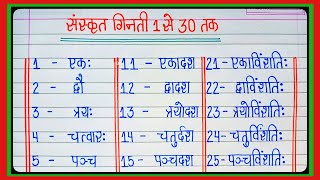 संस्कृत गिनती 1 से 30 तक
1 - एकः 11 - एकादश 21- एकाविंशतिः
2 - द्वौ 12 - द्वादश 22- द्वाविंशतिः
3 - त्रयः 13 - त्रयोदश 23- त्रयोविंशतिः
4 - चत्वारः 14 - चतुर्दश 24- चतुर्विंशतिः
5 - पञ्च 15- पञ्चदश 25- पञ्चविंशतिः